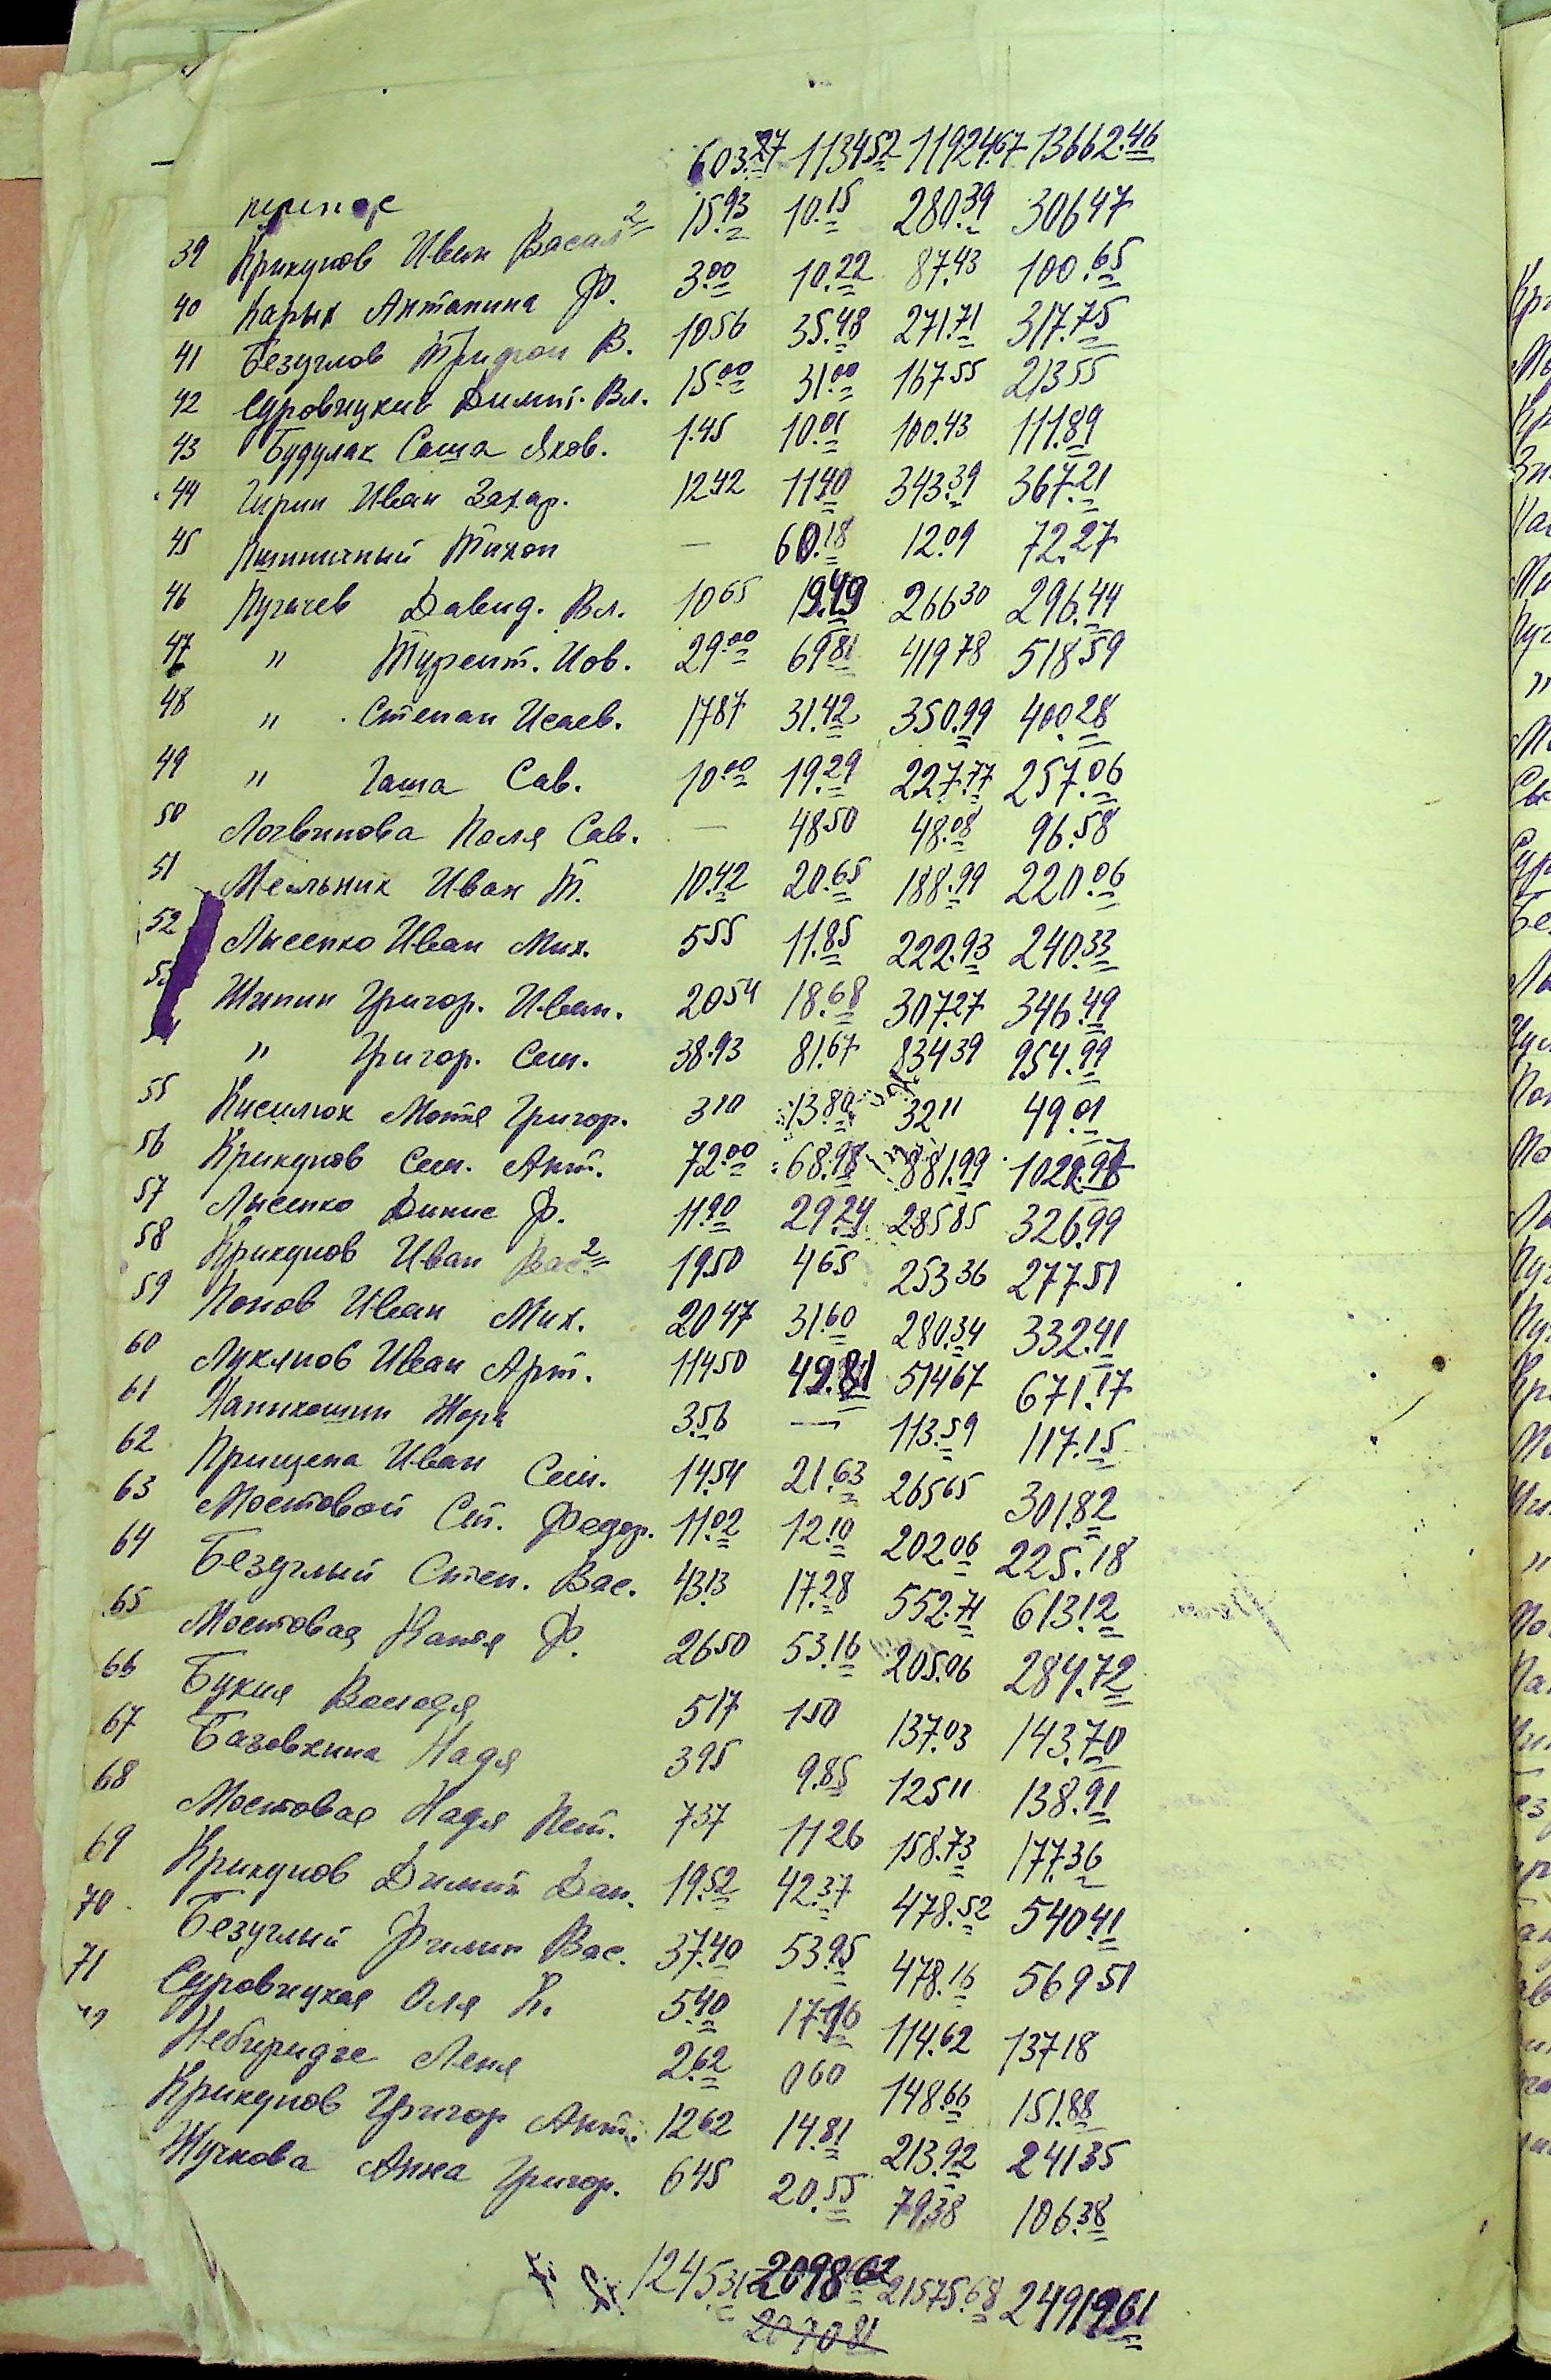 603.27 113452 11924.67 13662.46
39 Крикунов Иван Васил 2 15.93 10.15 280.39 30647
40 Карых Антонина Ф. 3.00 10.22 87.43 100.65
41 Безуглов Трифон В. 1056 35.48 271.71 317.75
42 Суровицкий Димит. Вл. 15.00 31.00 167.55 21355
43 Будулак Саша Яков. 1.45 10.01 100.43 111.89
44 Иван Захар. 1242 1140 343.39 367.21
45 Пшеничный Тихон — 60.18 12.09 72.27
46 Пугачев Давид. Вл. 1065 19.49 26630 296.44
47 " Иов. 29.00 6981 41978 51859
48 " Степан Исаев. 1787 31.42 350.99 400.28
49 " Гаша Сав. 10.00 19.29 227.77 257.06
50 Логвинова Поля Сав. — 4850 48.08 96.58
51 Мельник Иван Т. 10.42 20.65 188.99 220.06
52 Лысенко Иван Мих. 555 11.85 222.93 240.33
Шипин Григор. Иван. 2054 18.68 307.27 346.49
" Григор. Сем. 38.93 81.67 83439 954.99
55 Киселюк Мотя Григор. 310 13.80 3211 49.01
56 Крикунов Сем. Ант. 72.00 68.98 881.99
57 Лысенко Ф. 11.90 29.24 28585 326.99
58 Крикунов Иван Вас 2 1950 465 25336 277.51
59 Попов Иван Мих. 2047 31.60 280.34 332.41
60 Лукянов Иван Арт. 11450 49.81 51467 671.17
61 Жора 3.56 — 113.59 117.15
62 Прищепа Иван Сем. 14.54 21.63 26565 301.82
63 Мостовой Ст. Федор. 11.02 12.10 202.06 225.18
64 Безуглый Степ. Вас. 43.13 17.28 552.71 613.12
65 Мостовая Катя Ф. 2650 53.16 205.06 284.72
66 Володя 517 150 137.03 143.70
67 Базовкина Надя 395 9.85 12511 138.91
68 Мостовая Надя Пет. 737 1126 158.73 177.36
69 Крикунов Димит Дан. 19.52 42.37 478.52 540.41
70 Безуглый Филип Вас. 37.40 53.95 478.16 56951
71 Суровицкая Оля К. 5.40 17.96 114.62 13718
Леня 2.62 060 148.66 151.88
Крикунов Григор Ант. 1262 14.81 213.92 24135
Жучкова Анна Григор. 645 20.55 79.38 106.38
1245.31 209862 21575.68 24919.61
207081